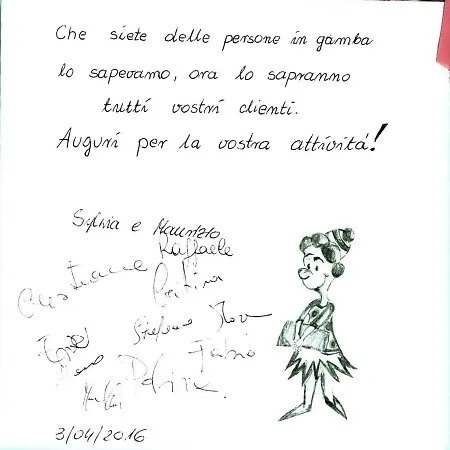 Che siete delle persone in gamba
lo sapevamo, ora lo sapranno
tutti vostri clienti.
Auguri per la vostra attività!
Sylvia e Maurizio
Raffaele
Cristiane
Cristina
Stefano
Fabio
3/04/2016